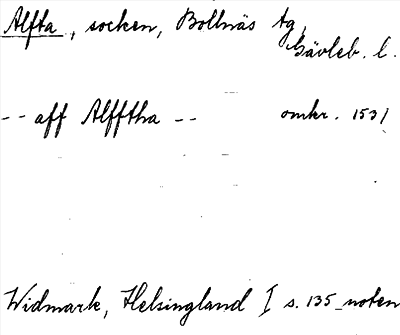 Alfta, socken, Bollnäs tg,
Gävleb. l.
-- aff Alfftha -- omkr. 1531
Widmark, Helsingland I s. 135 noten